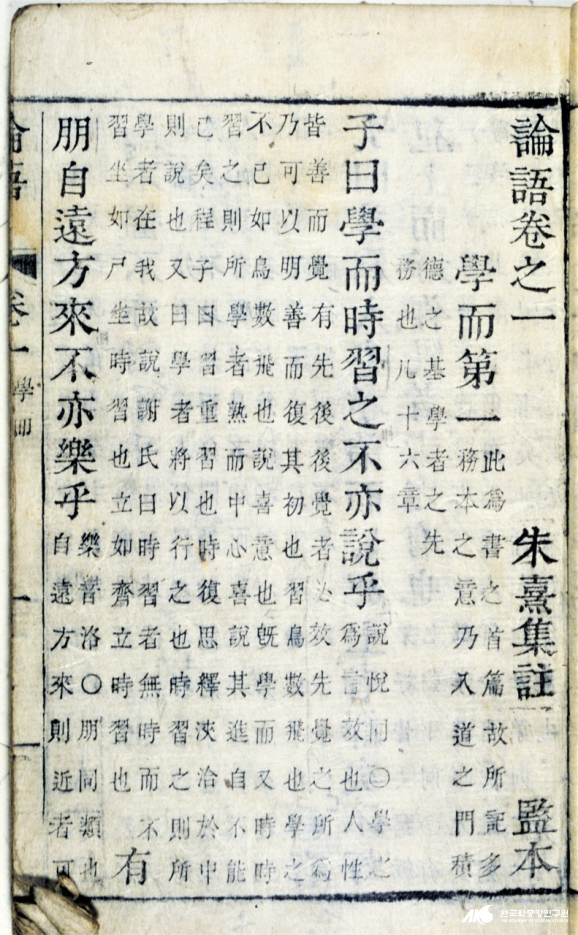 論語卷之一 朱熹集註 監本
學而第一
此爲書之首篇故所記多
務本之意乃入道之門積
德之基學者之先
務也凡十六章
子曰學而時習之不亦說乎
說悅同○學之
爲言效也人性
皆善而覺有先後後覺者必效先覺之所爲
乃可以明善而復其初也習鳥數飛也學之
不已如鳥數飛也說喜意也旣學而又時時
習之則所學者熟而中心喜說其進自不能
已矣程子曰習重習也時復思繹浹洽於中
則說也又曰學者將以行之也時習之則所
學者在我故說謝氏曰時習者無時而不
習坐如尸坐時習也立如齊立時習也
有
朋自遠方來不亦樂乎
樂音洛○朋同類也
自遠方來則近者可
論語 卷一 學而 一
AKS 한국학중앙연구원